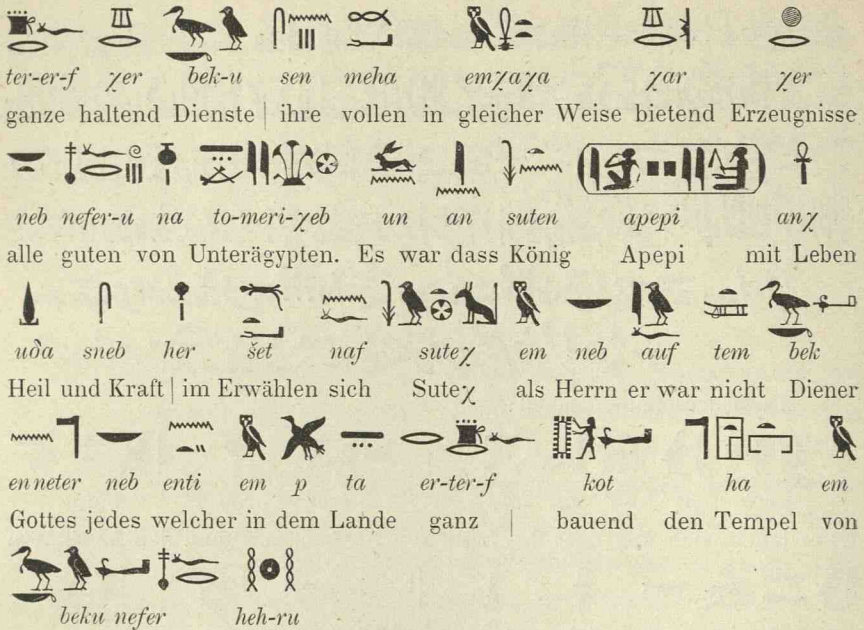 ter-er-f χer bek-u sen meha emχaχa χar χer
ganze haltend Dienste | ihre vollen in gleicher Weise bietend Erzeugnisse
neb nefer-u na to-meri-χeb un an suten apepi anχ
alle guten von Unterägypten. Es war dass König Apepi mit Leben
uδa sneb her šet naf suteχ em neb auf tem bek
Heil und Kraft | im Erwählen sich Suteχ als Herrn er war nicht Diener
en neter neb enti em p ta er-ter-f kot ha em
Gottes jedes welcher in dem Lande ganz | bauend den Tempel von
beku nefer heh-ru